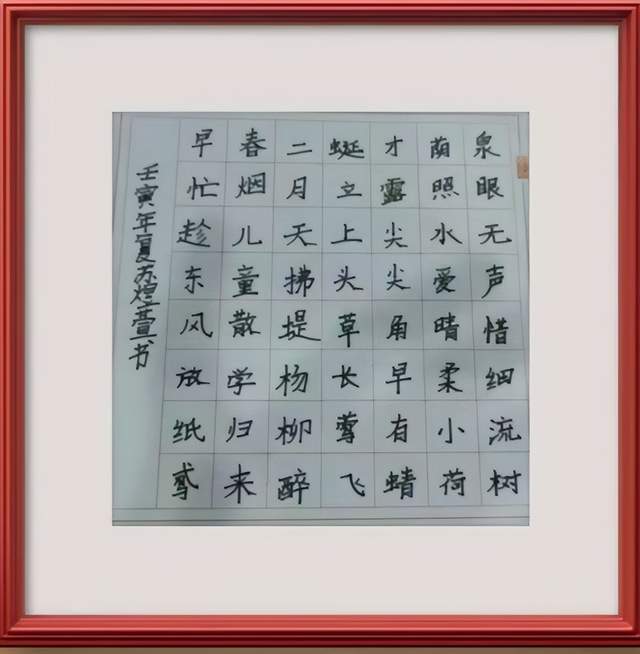 泉眼无声惜细流树
荫照水爱晴柔小荷
才露尖尖角早有蜻
蜓立上头草长莺飞
二月天拂堤杨柳醉
春烟儿童散学归来
早忙趁东风放纸鸢
壬寅年夏苏煌萱书